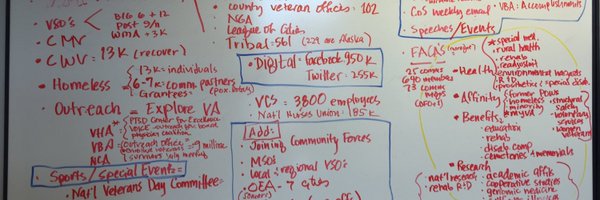 • VSO's
BIG 6 + 12
Post 9/11
WMA + 3K
• CMV
• CWV = 13K (recover)
• Homeless
13K = individuals
6-7K = comm. partners
Grantees
• Outreach = Explore VA
VHA
PTSD Center for Excellence
VBA
Outreach office
= 9 million
NCA
• Sports/Special Events =
Nat'l Veterans Day Committee =
county veteran offices: 102
• NGA
League of Cities
Tribal-561 (229 are Alaska)
• Digital: facebook 950K
Twitter: 255K
• VCS = 3800 employees
• Nat'l Nurses Union: 185K
Add:
• Joining Community Forces
• MSOs
• Local & regional VSO's
• OEA - 7 cities
CoS weekly email
• VBA: Accomplishments
• Speeches/Events
• FAQ's
25 comms
690 members
73 comms
• Health
* special med.
• rural health
• rehab
• readjustmt
environment hazards
• R+D
• prosthetic + special disab
• Affinity
• former POWs
• homeless
• minority
• structural safety
• voluntary services
• women veterans
• Benefits
• education
• rehab
• disab. comp
• cemeteries + memorials
• Research
• nat'l research
• rehab R+D
• academic affil
• cooperative studies
• genomic medicine